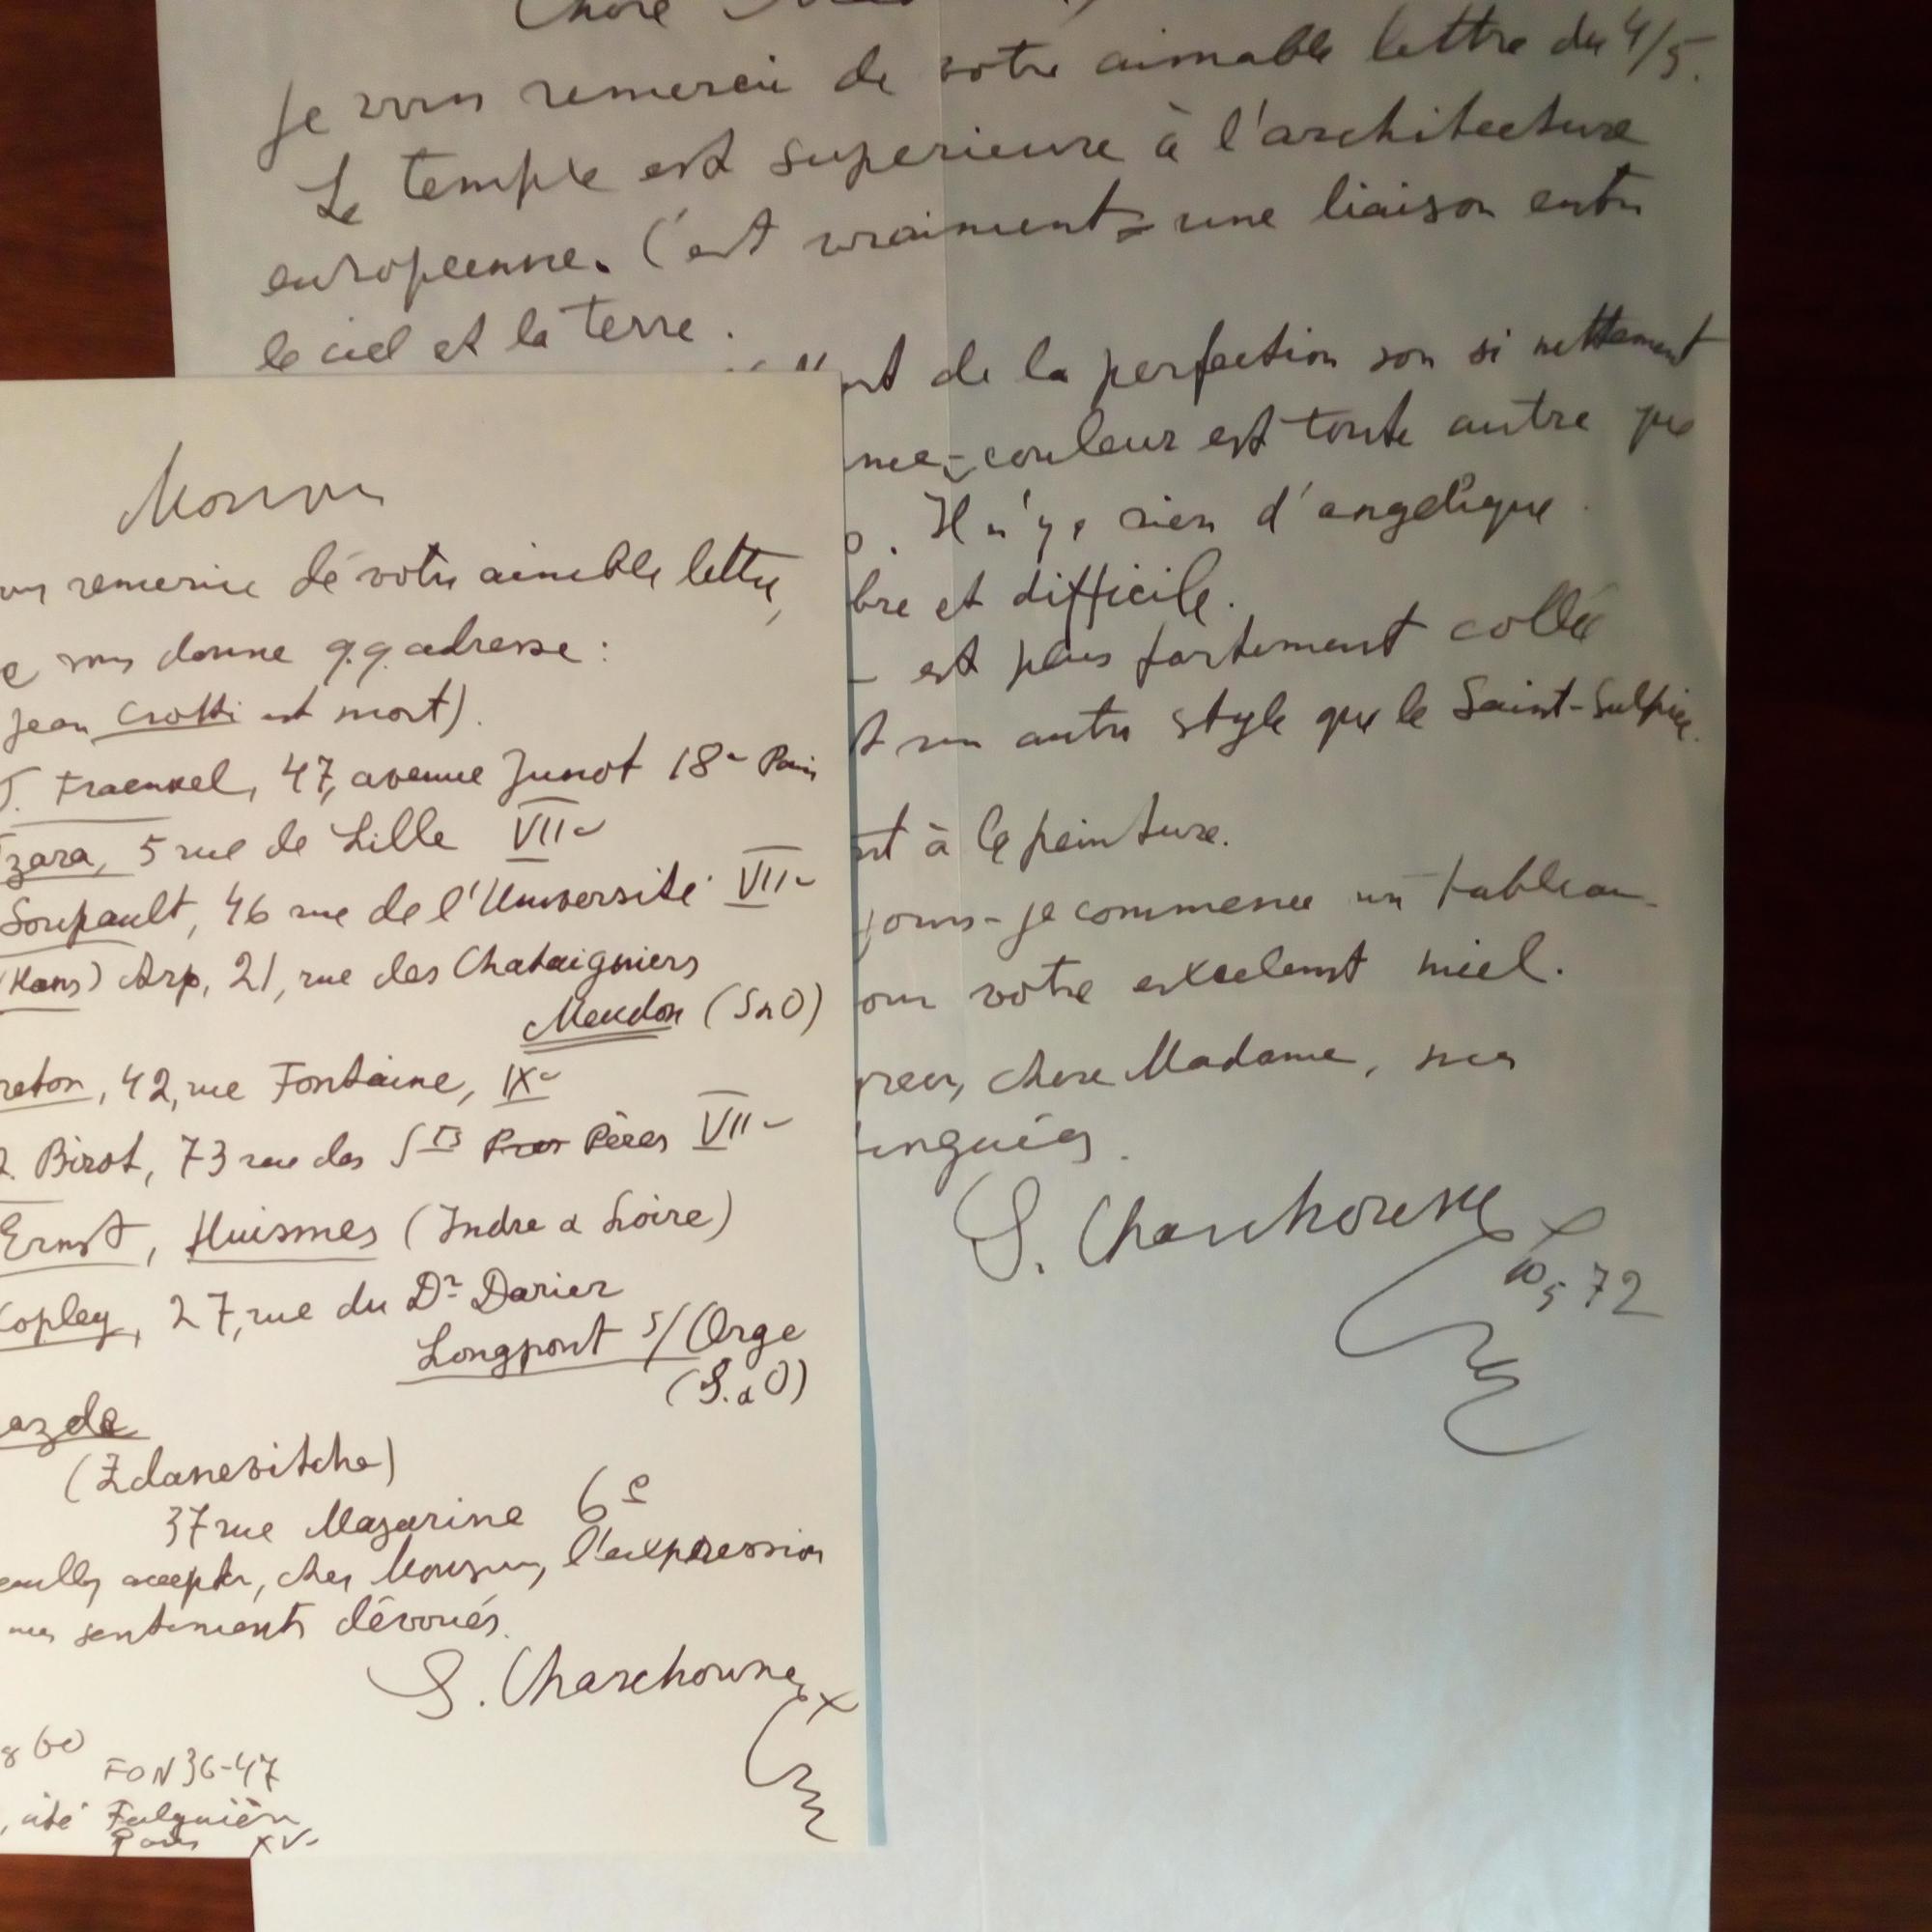 Je vous remercie de votre aimable lettre du 4/5.
Le temple est superieure à l'architecture
europeenne. C'est vraiment une liaison entre
le ciel et la terre.
de la perfection son si nettement
couleur est toute autre que
. Il n'y a rien d'angelique.
bre et difficile.
est plus fortement collée
t un autre style que le Saint-Sulpice.
nt à la peinture.
jours - je commence un tableau
our votre excelent miel.
chere Madame, mes
inguées.
S. Charchoune
10 5 72
Monsieur
remercie de votre aimable lettre,
e vous donne q.q. adresse:
Jean Crotti est mort).
T. Fraenkel, 47, avenue Junot 18e Paris
zara, 5 rue de Lille VIIe
Soupault, 46 rue de l'Université VIIe
(Hans) Arp, 21, rue des Chataigniers
Meudon (S&O)
reton, 42, rue Fontaine, IXe
Birot, 73 rue des Sts Pères VIIe
Ernst, Huismes (Indre & Loire)
Copley, 27, rue du Dr Darier
Longpont s/Orge
(S.&O)
azde
(Zdanevitche)
37 rue Mazarine 6e
euillez accepter, cher Monsieur, l'expression
mes sentiments dévoués.
S. Charchoune
60
FON 36-47
, cité Falguière
Paris XVe